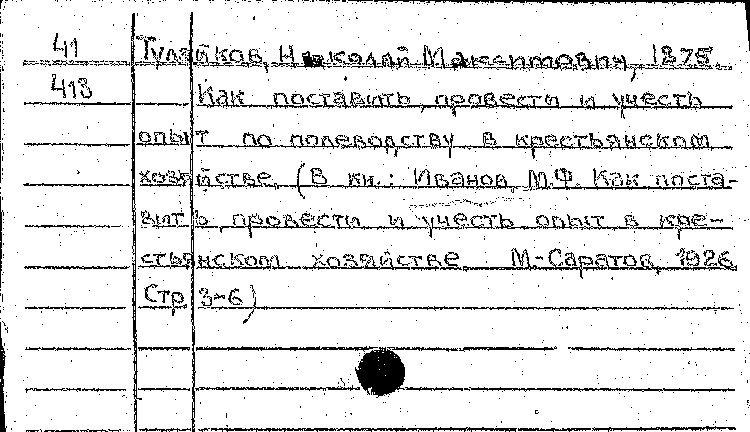 41 Тулайков, Николай Максимович, 1875.
413 Как поставить, провести и учесть
опыт по полеводству в крестьянском
хозяйстве. (В кн.: Иванов, М.Ф. Как поста-
вить, провести и учесть опыт в кре-
стьянском хозяйстве. М.-Саратов, 1926
Стр 3-6)